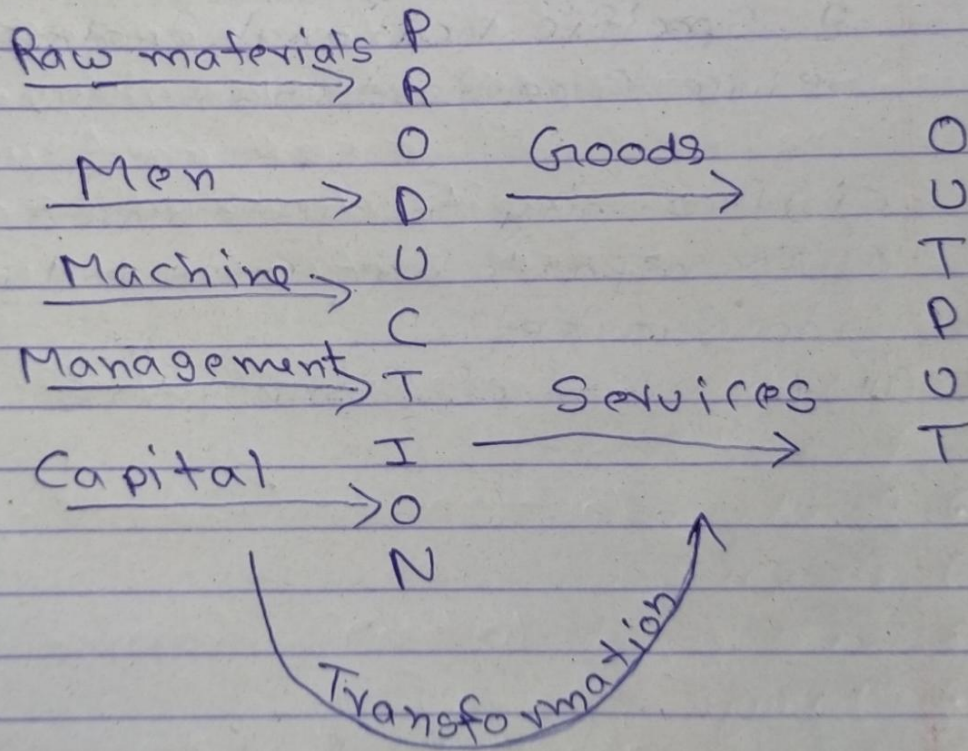 Raw materials
Men
Machine
Management
Capital
PRODUCTION
Goods
Services
OUTPUT
Transformation